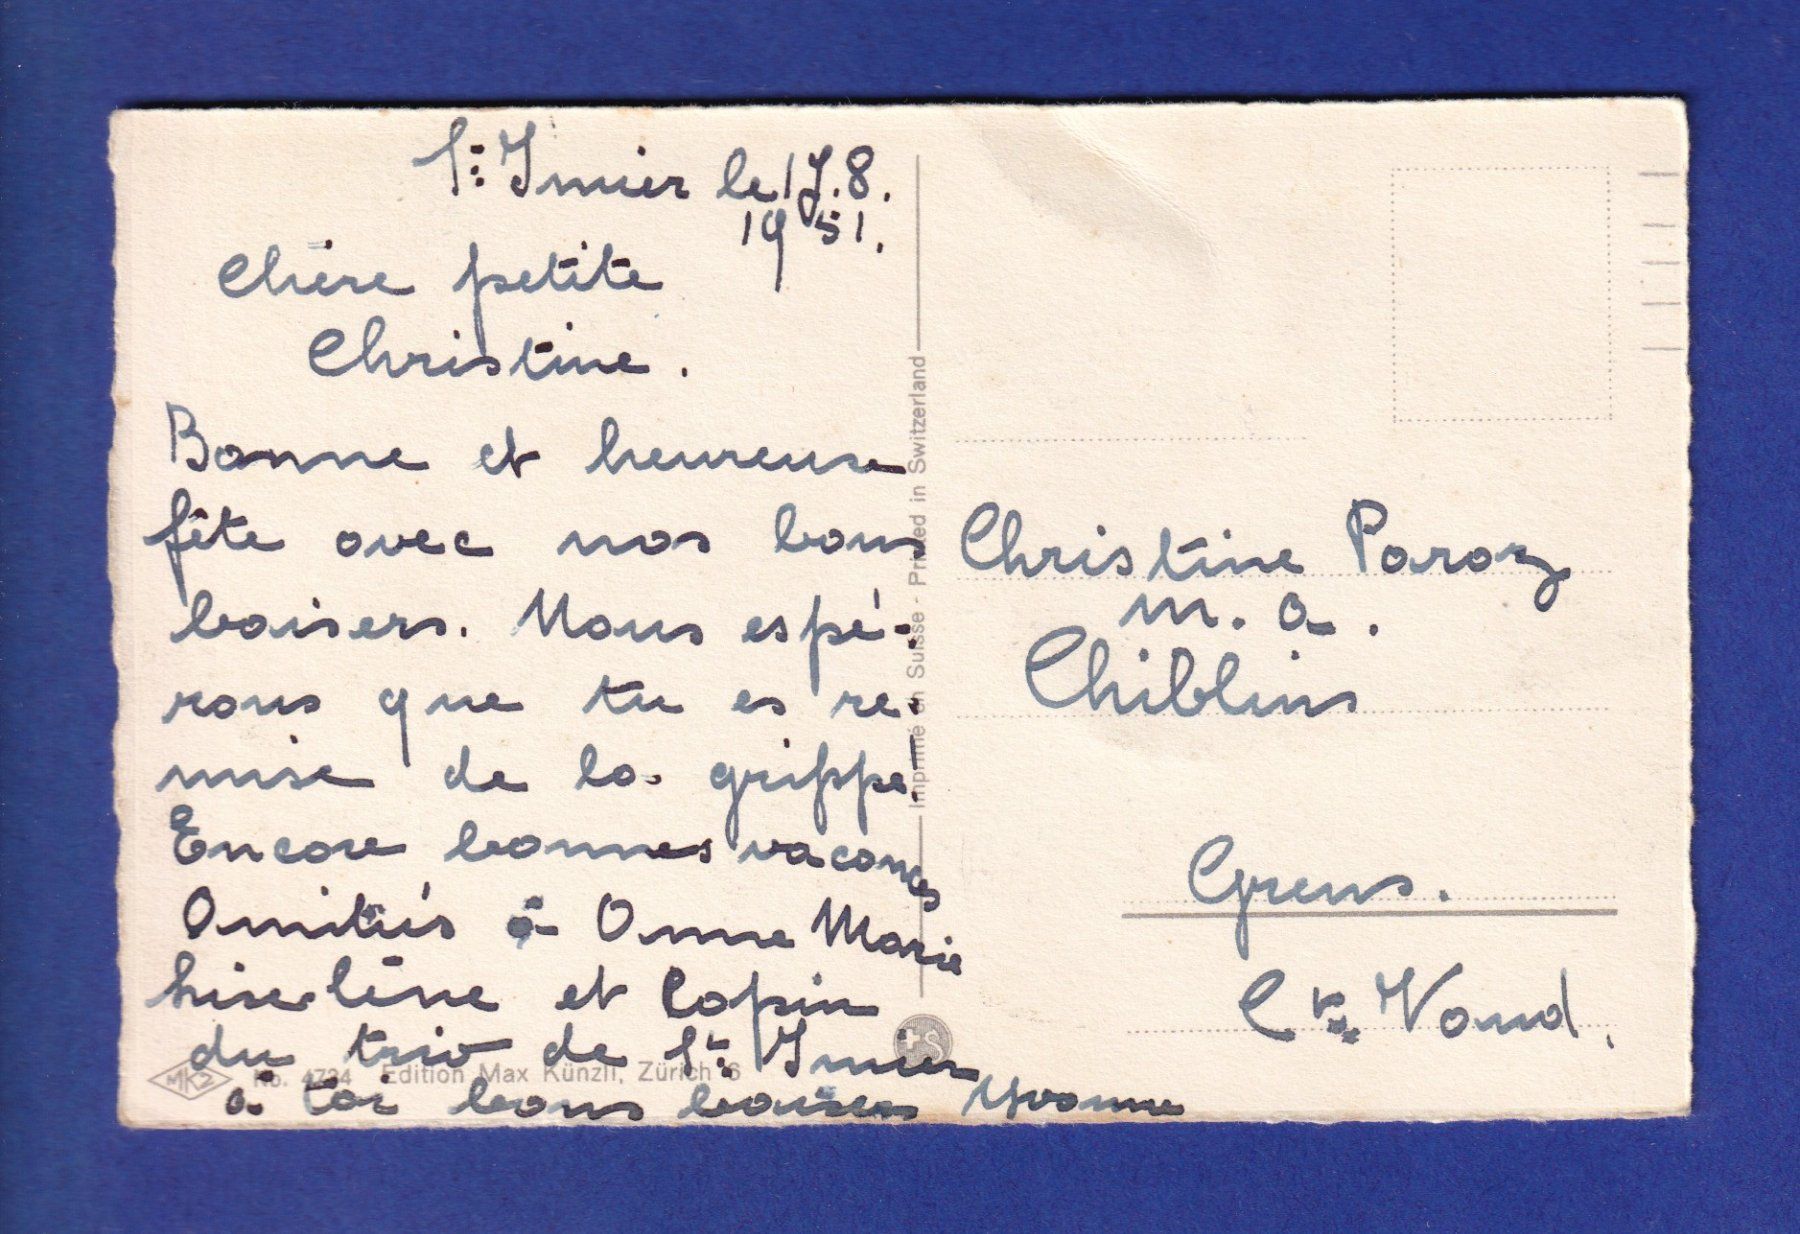 St. Imier le 17.8.
1951.
Chère petite
Christine.
Bonne et heureuse
fête avec nos bons
baisers. Nous espé-
rons que tu es re-
mise de la grippe.
Encore bonnes vacances
Amitiés à Anne Marie
et Copin
du trio de St. Imier
à toi bons baisers Yvonne
Imprimé en Suisse - Printed in Switzerland
MK2 No. 4734 Edition Max Künzli, Zürich 6
+S
Christine Paroz
m. a.
Chiblins
Grens.
Ct. Vaud.